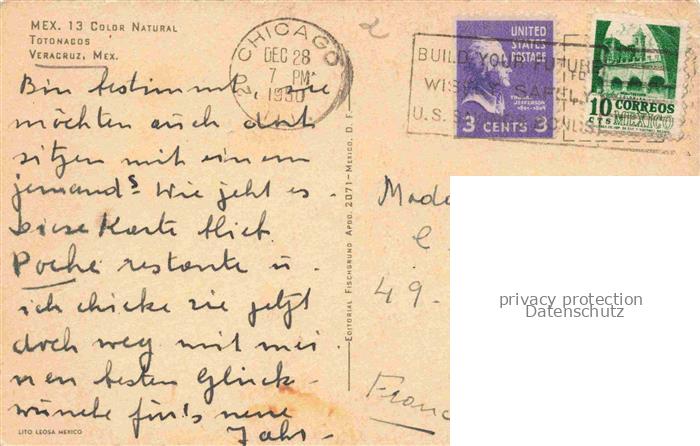 MEX. 13 COLOR NATURAL
TOTONACOS
VERACRUZ, MEX.
Bin bestimmt, sie
möchten auch dort
sitzen mit einem
jemand? Wie geht es.
Diese Karte blieb
Poche restante u.
ich schicke sie jetzt
doch weg mit mei
nen besten Glück-
wünche für's neue
Jahr-
LITO LEOSA MEXICO
EDITORIAL FISCHGRUND APDO. 2071-MEXICO, D. F.
CHICAGO
DEC 28
7 PM
1950
BUILD YOUR FUTURE
WISELY SAFELY
U.S. SAVINGS BONDS
UNITED
STATES
POSTAGE
THOMAS
JEFFERSON
3 CENTS 3
10 CORREOS
CTS MEXICO
2
49-
privacy protection
Datenschutz